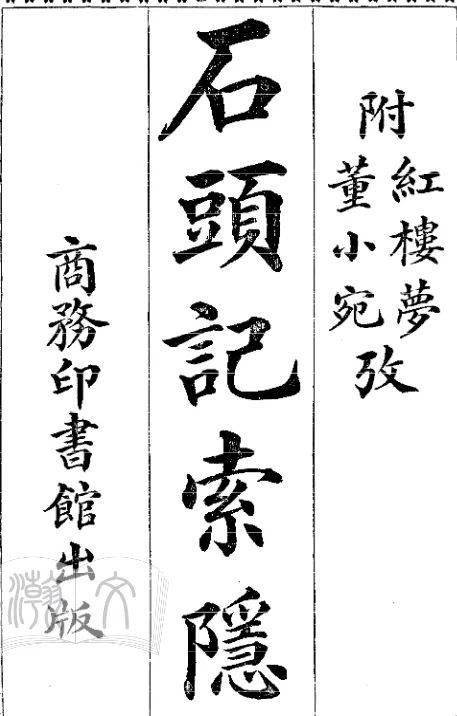 附紅樓夢董小宛攷
石頭記索隱
商務印書館出版
瀚文